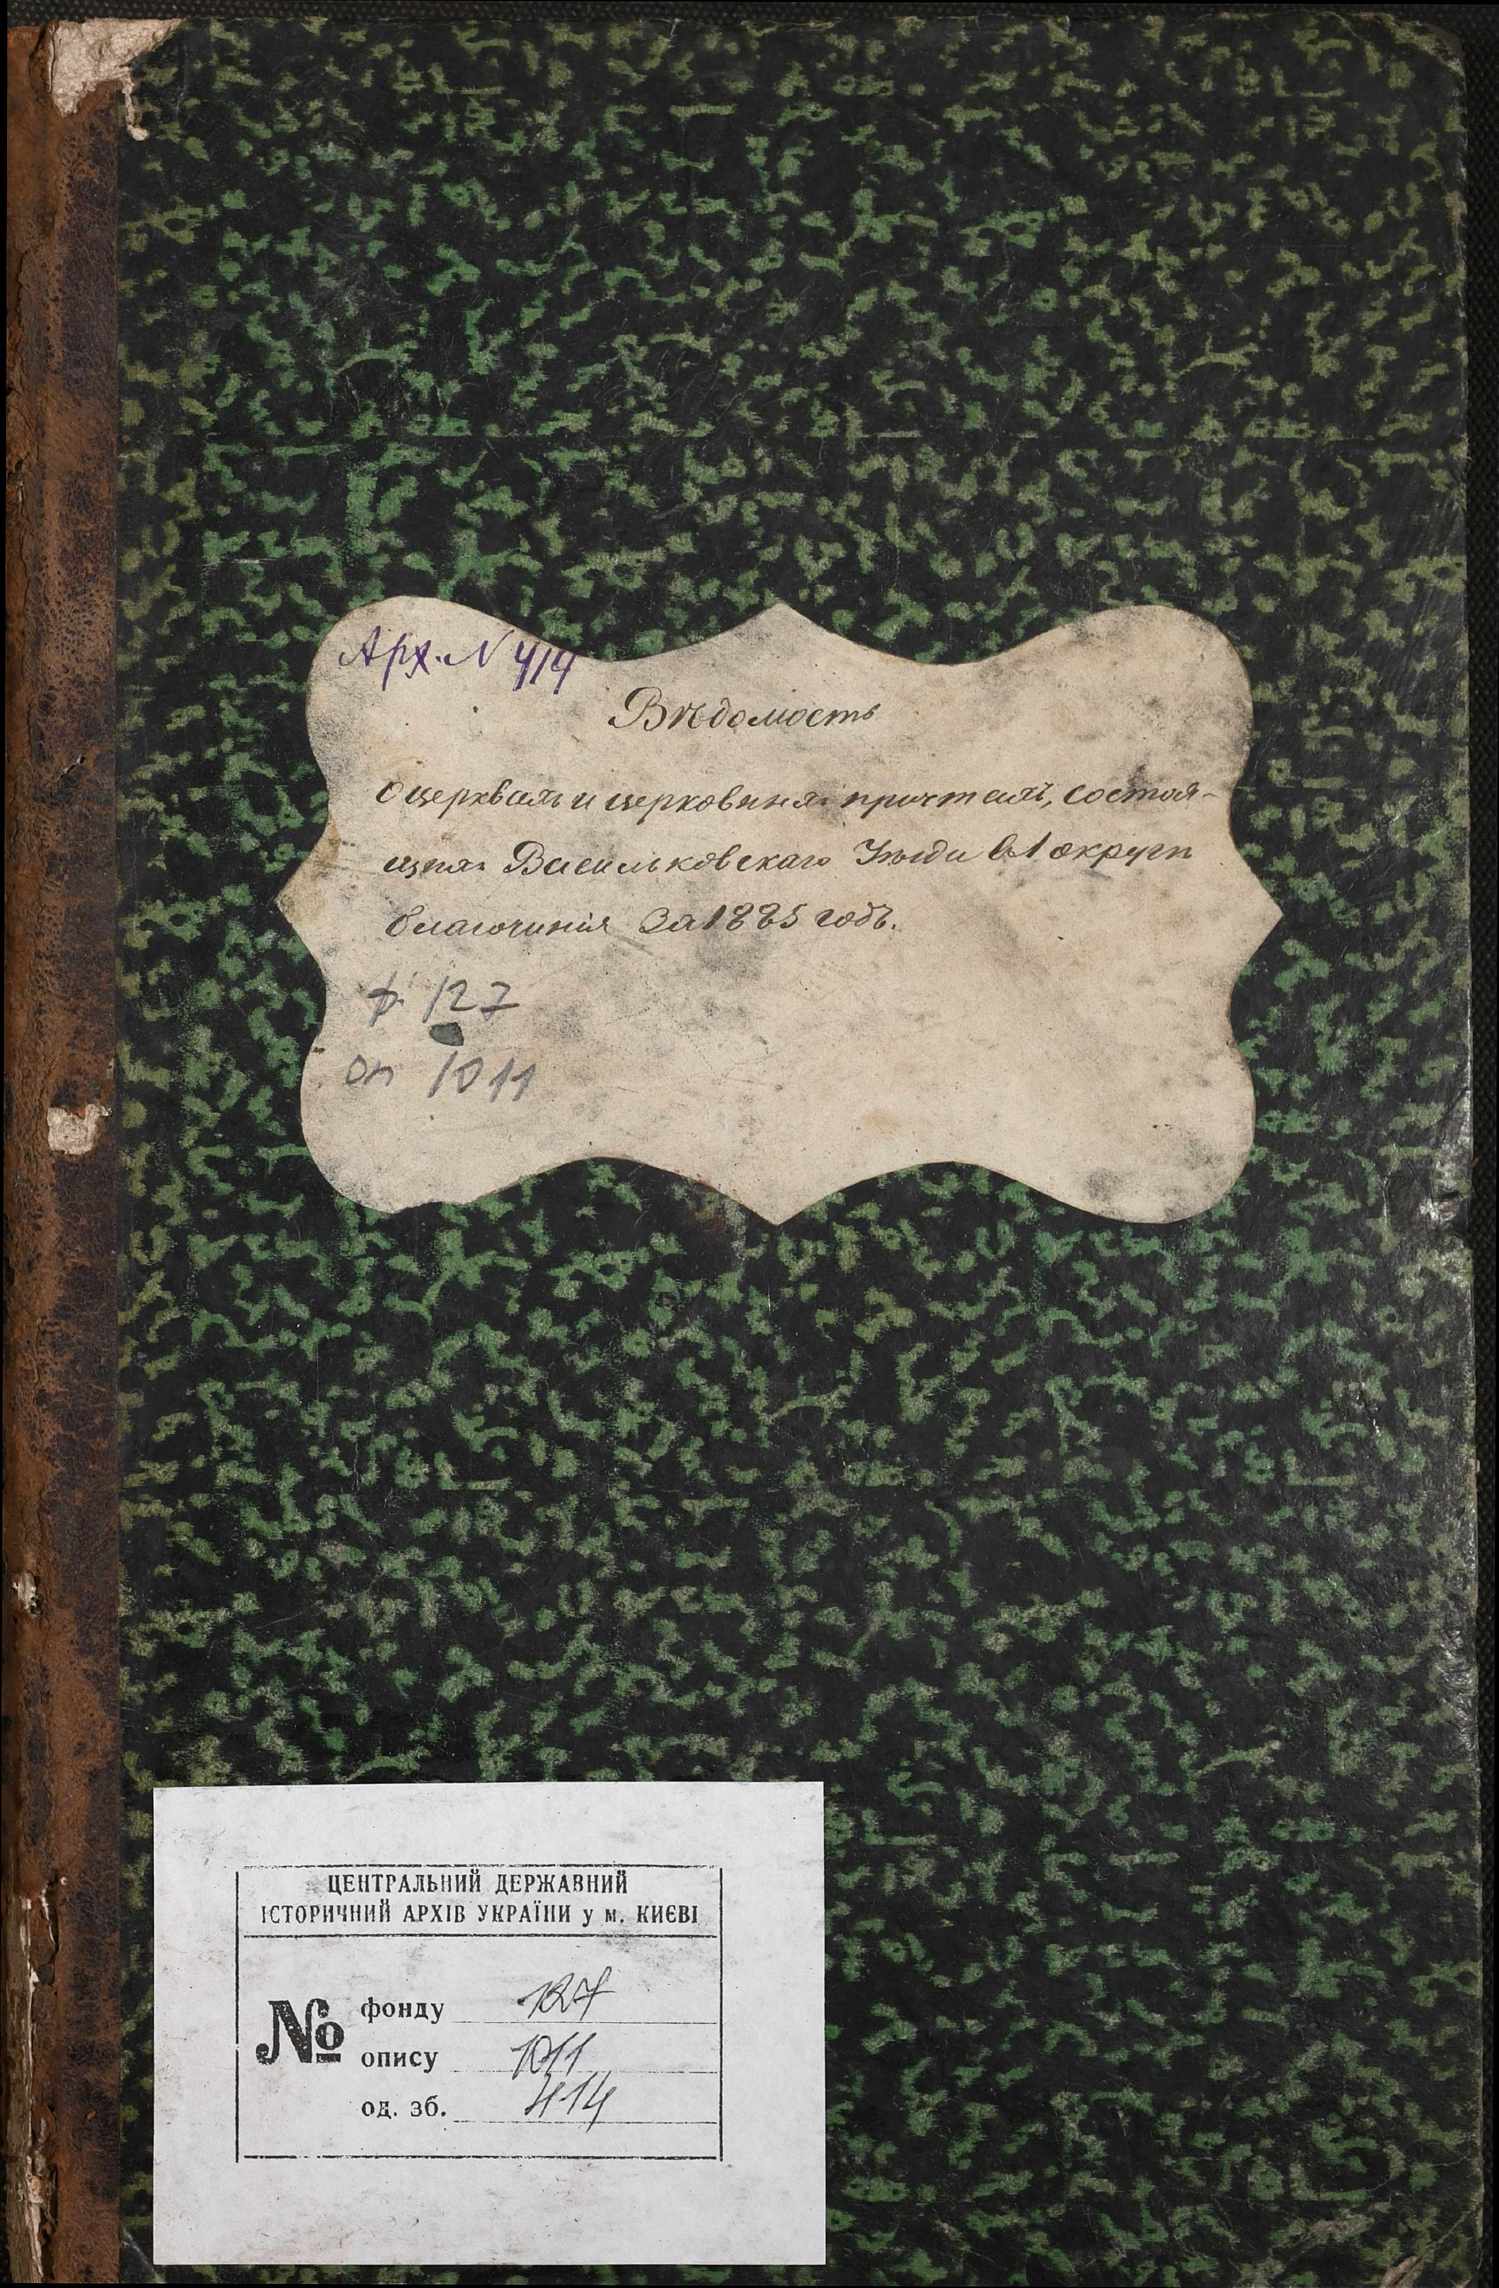 Арх. N 414
Вѣдомость
о церквахъ и церковныхъ причтахъ, состоя-
щихъ Васильковскаго Уѣзда въ 1 округѣ
благочинія за 1885 годъ.
ф. 127
оп 1011
ЦЕНТРАЛЬНИЙ ДЕРЖАВНИЙ
ІСТОРИЧНИЙ АРХІВ УКРАЇНИ у м. КИЄВІ
№ фонду 127
опису 1011
од. зб. 414